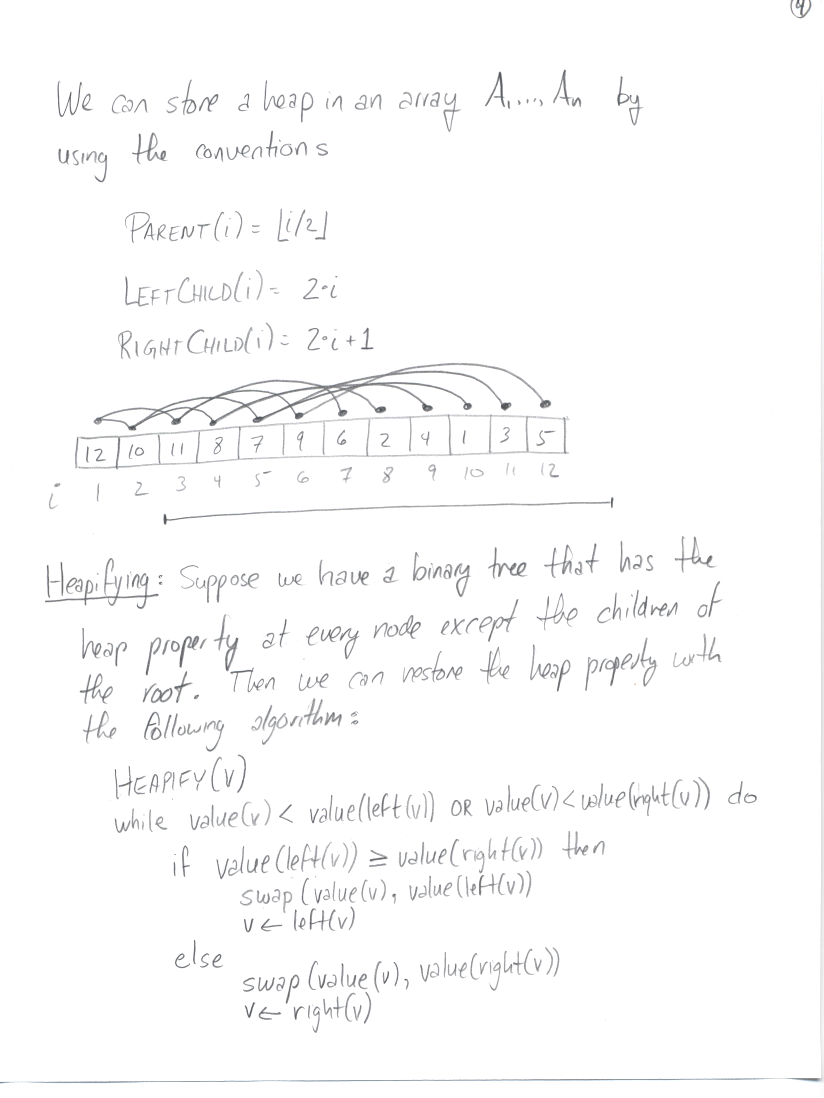 4
We can store a heap in an array A1,..., An by
using the conventions
PARENT(i) = ⌊i/2⌋
LEFTCHILD(i) = 2·i
RIGHTCHILD(i) = 2·i+1
12 10 11 8 7 9 6 2 4 1 3 5
i 1 2 3 4 5 6 7 8 9 10 11 12
Heapifying: Suppose we have a binary tree that has the
heap property at every node except the children of
the root. Then we can restore the heap property with
the following algorithm:
HEAPIFY(V)
while value(v) < value(left(v)) OR value(v) < value(right(v)) do
if value(left(v)) ≥ value(right(v)) then
swap(value(v), value(left(v))
v ← left(v)
else
swap(value(v), value(right(v))
v ← right(v)